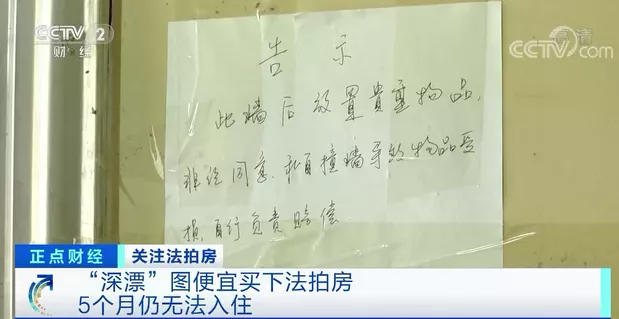 CCTV 2
财·经
高清
CCTV.com
告示
此墙后放置貴重物品，
非经同意，私自撞墙导致物品受
损，自行负责赔偿
正点财经
关注法拍房
“深漂”图便宜买下法拍房
5个月仍无法入住